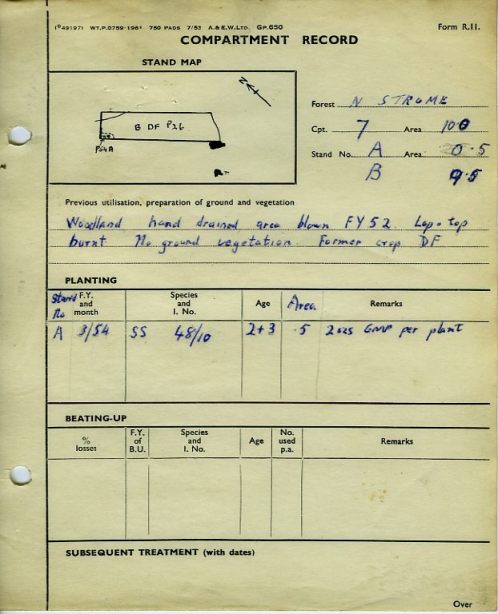 (°49197) WT.P.0759-1961 750 PADS 7/53 A.&E.W.LTD. GP.650
Form R.11.
COMPARTMENT RECORD
STAND MAP
B DF P26
P54A
Forest N STROME
Cpt. 7 Area 10.0
Stand No. A Area 0.5
B 9.5
Previous utilisation, preparation of ground and vegetation
Woodland hand drained area blown FY52. Lop + top
burnt No ground vegetation. Former crop DF
PLANTING
Stand No F.Y. and month Species and I. No. Age Area Remarks
A 3/54 SS 48/10 2+3 .5 2025 GMP per plant
BEATING-UP
% losses F.Y. of B.U. Species and I. No. Age No. used p.a. Remarks
SUBSEQUENT TREATMENT (with dates)
Over